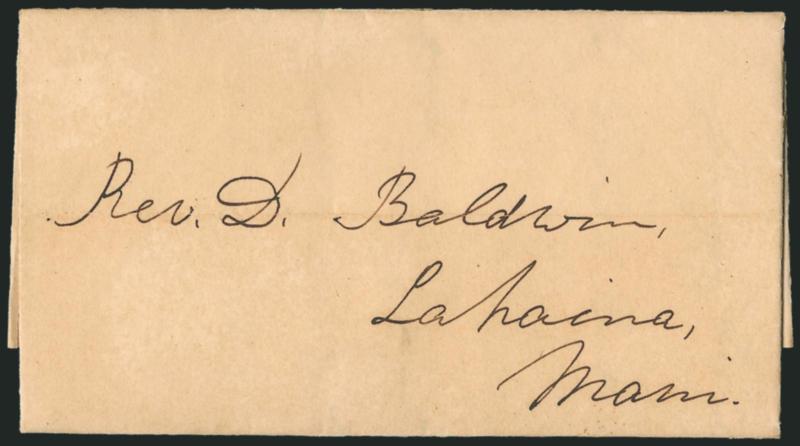 Rev. D. Baldwin,
Lahaina,
Maui.